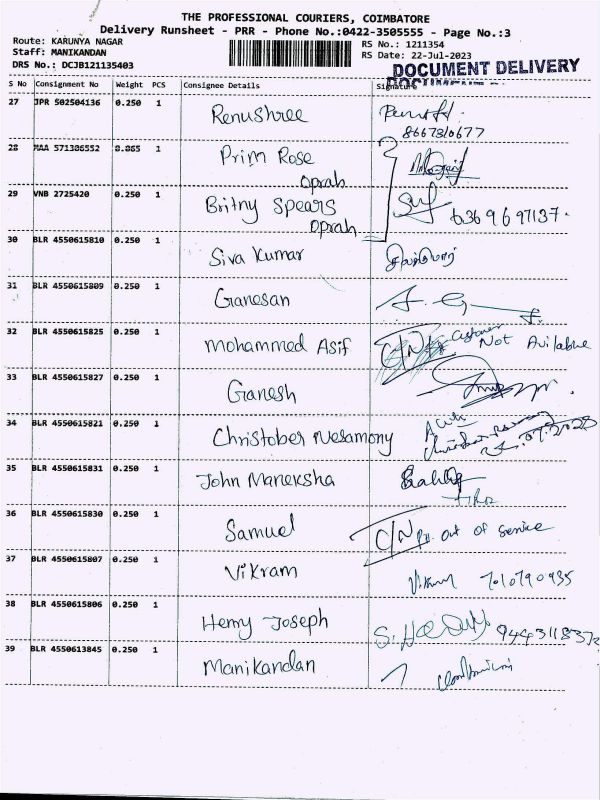 THE PROFESSIONAL COURIERS, COIMBATORE
Delivery Runsheet - PRR - Phone No.:0422-3505555 - Page No.:3
Route: KARUNYA NAGAR RS No.: 1211354
Staff: MANIKANDAN RS Date: 22-Jul-2023
DRS No.: DCJB121135403 DOCUMENT DELIVERY
S No Consignment No Weight PCS Consignee Details Signature
27 JPR 502504136 0.250 1 Renushree
8667310677
28 MAA 571386552 1 Prim Rose
Oprah
29 VNB 2725420 0.250 1 Britny Spears
Oprah 6369697137.
30 BLR 4550615810 0.250 1 Siva Kumar
31 BLR 4550615809 0.250 1 Ganesan
32 BLR 4550615825 0.250 1 Mohammed Asif C/N Customer Not Avilable
33 BLR 4550615827 0.250 1 Ganesh
34 BLR 4550615821 0.250 1 Christober Nesamony
35 BLR 4550615831 0.250 1 John Maneksha
36 BLR 4550615830 0.250 1 Samuel C/N Ph. out of service
37 BLR 4550615807 0.250 1 Vikram 7010790935
38 BLR 4550615806 0.250 1 Henry Joseph
39 BLR 4550613845 0.250 1 Manikandan